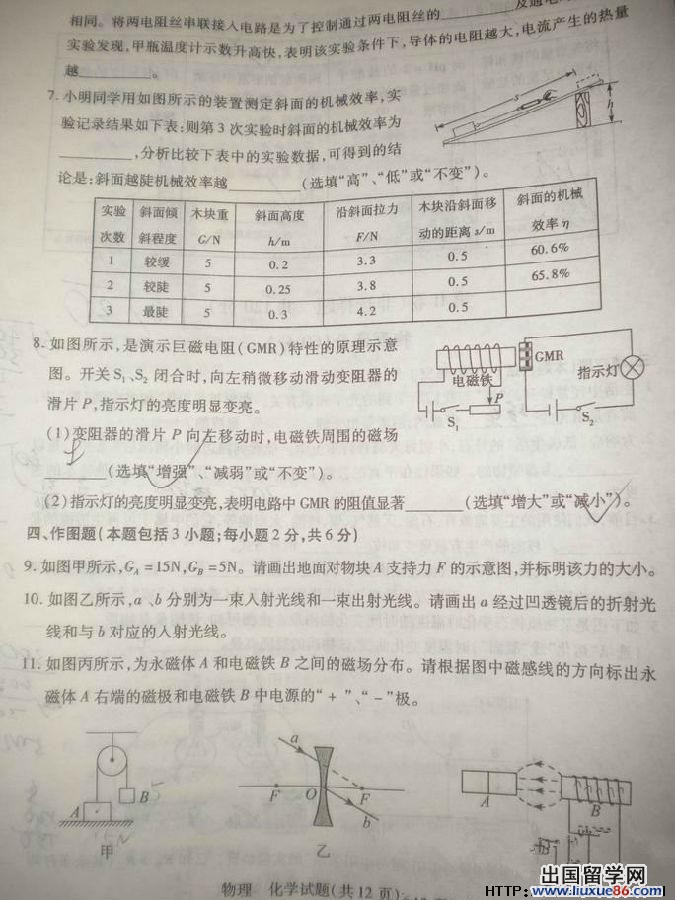 相同。将两电阻丝串联接入电路是为了控制通过两电阻丝的
实验发现,甲瓶温度计示数升高快,表明该实验条件下,导体的电阻越大,电流产生的热量
越________。
7. 小明同学用如图所示的装置测定斜面的机械效率,实
验记录结果如下表:则第3次实验时斜面的机械效率为
________,分析比较下表中的实验数据,可得到的结
论是:斜面越陡机械效率越________(选填“高”、“低”或“不变”)。
s
h
实验次数 斜面倾斜程度 木块重G/N 斜面高度h/m 沿斜面拉力F/N 木块沿斜面移动的距离s/m 斜面的机械效率η
1 较缓 5 0.2 3.3 0.5 60.6%
2 较陡 5 0.25 3.8 0.5 65.8%
3 最陡 5 0.3 4.2 0.5
8. 如图所示,是演示巨磁电阻(GMR)特性的原理示意
图。开关S₁、S₂ 闭合时,向左稍微移动滑动变阻器的
滑片P,指示灯的亮度明显变亮。
(1)变阻器的滑片P向左移动时,电磁铁周围的磁场
________(选填“增强”、“减弱”或“不变”)。
GMR
电磁铁
指示灯
P
S₁
S₂
(2)指示灯的亮度明显变亮,表明电路中GMR的阻值显著________(选填“增大”或“减小”)。
四、作图题(本题包括3小题;每小题2分,共6分)
9. 如图甲所示,G_A=15N,G_B=5N。请画出地面对物块A支持力F的示意图,并标明该力的大小。
10. 如图乙所示,a、b分别为一束入射光线和一束出射光线。请画出a经过凹透镜后的折射光
线和与b对应的入射光线。
11. 如图丙所示,为永磁体A和电磁铁B之间的磁场分布。请根据图中磁感线的方向标出永
磁体A右端的磁极和电磁铁B中电源的“+”、“-”极。
A
B
甲
a
F
O
F
b
乙
A
B
物理 化学试题(共12页)
出国留学网
HTTP:
www.liuxue86.com